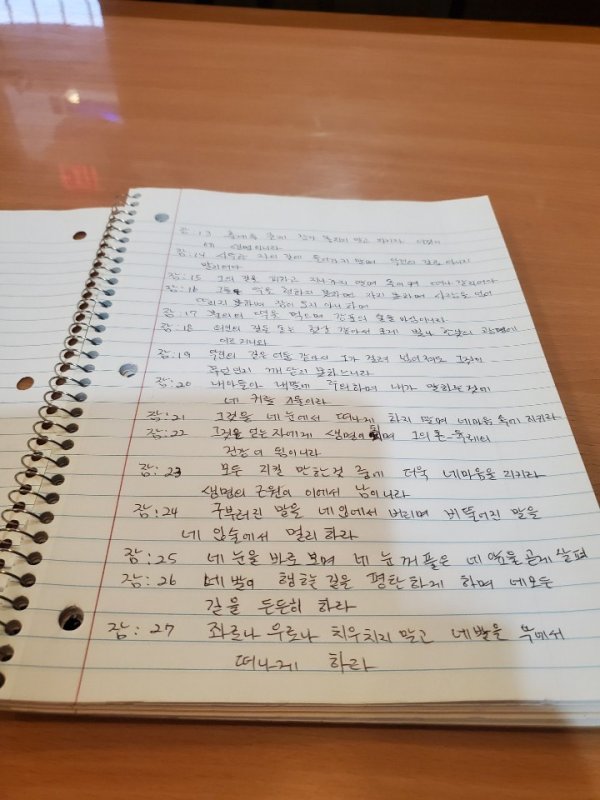 잠:13 훈계를 굳게 잡아 놓치지 말고 지키라 이것이
네 생명이니라
잠:14 사악한 자의 길에 들어가지 말며 악인의 길로 다니지
말지어다
잠:15 그의 길을 피하고 지나가지 말며 돌이켜 떠나갈지어다
잠:16 그들은 악을 행하지 못하면 자지 못하며 사람을 넘어
뜨리지 못하며 잠이 오지 아니하며
잠:17 불의의 떡을 먹으며 강포의 술을 마심이니라
잠:18 의인의 길은 돋는 햇살 같아서 크게 빛나 한낮의 광명에
이르거니와
잠:19 악인의 길은 어둠 같아서 그가 걸려 넘어져도 그것이
무엇인지 깨닫지 못하느니라
잠:20 내 아들아 내 말에 주의하며 내가 말하는 것에
네 귀를 기울이라
잠:21 그것을 네 눈에서 떠나게 하지 말며 네 마음 속에 지키라
잠:22 그것은 얻는 자에게 생명이 되며 그의 온 육체의
건강이 됨이니라
잠:23 모든 지킬 만한 것 중에 더욱 네 마음을 지키라
생명의 근원이 이에서 남이니라
잠:24 구부러진 말을 네 입에서 버리며 비뚤어진 말을
네 입술에서 멀리 하라
잠:25 네 눈은 바로 보며 네 눈꺼풀은 네 앞을 곧게 살펴
잠:26 네 발이 행하는 길을 평탄하게 하며 네 모든
길을 든든히 하라
잠:27 좌로나 우로나 치우치지 말고 네 발을 악에서
떠나게 하라